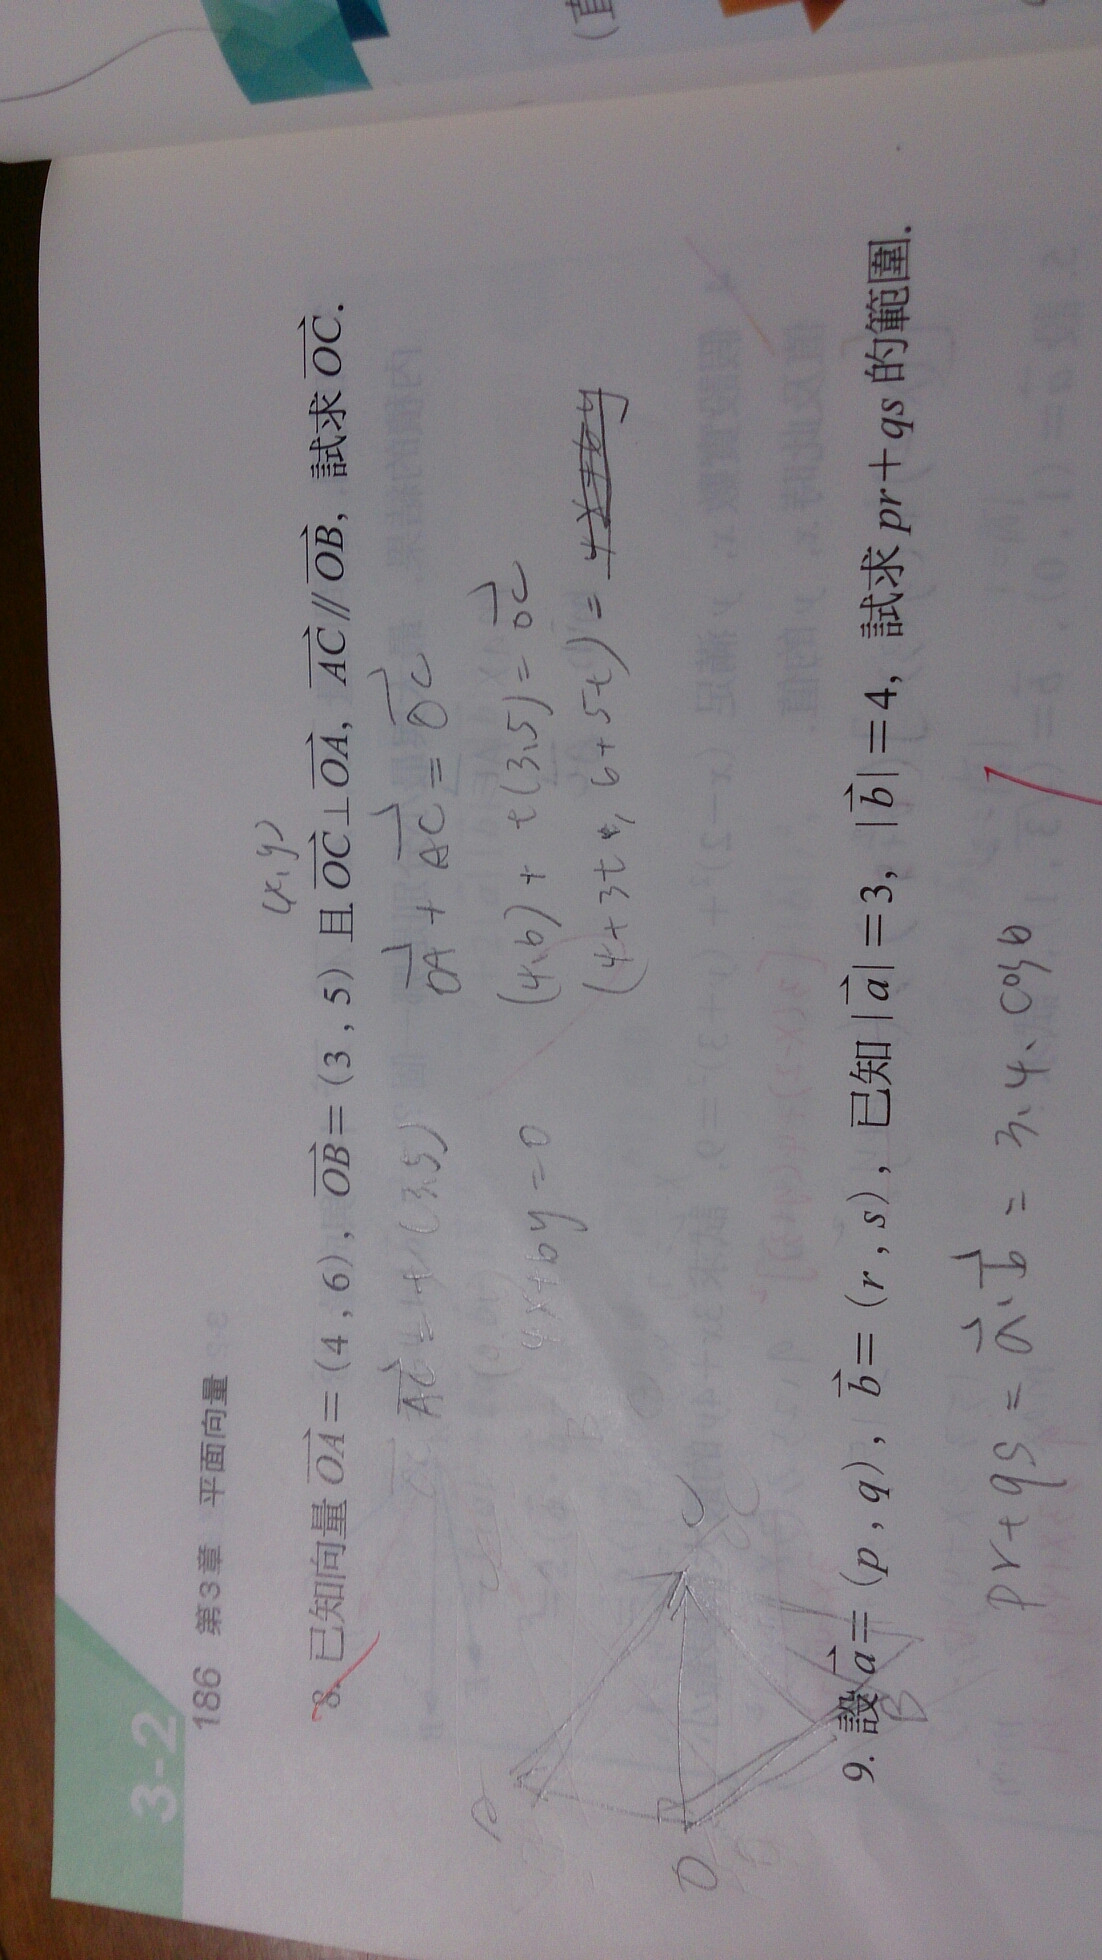 3-2
186 第3章 平面向量
(x,y)
8. 已知向量 OA=(4,6), OB=(3,5) 且 OC⊥OA, AC∥OB, 試求 OC.
OA + AC = OC
4x+6y=0
(4,6)+t(3,5)=OC
(4+3t, 6+5t)=
A
O
C
B
9. 設 a=(p,q), b=(r,s), 已知 |a|=3, |b|=4, 試求 pr+qs 的範圍.
pr+qs = a·b = 3·4·cosθ